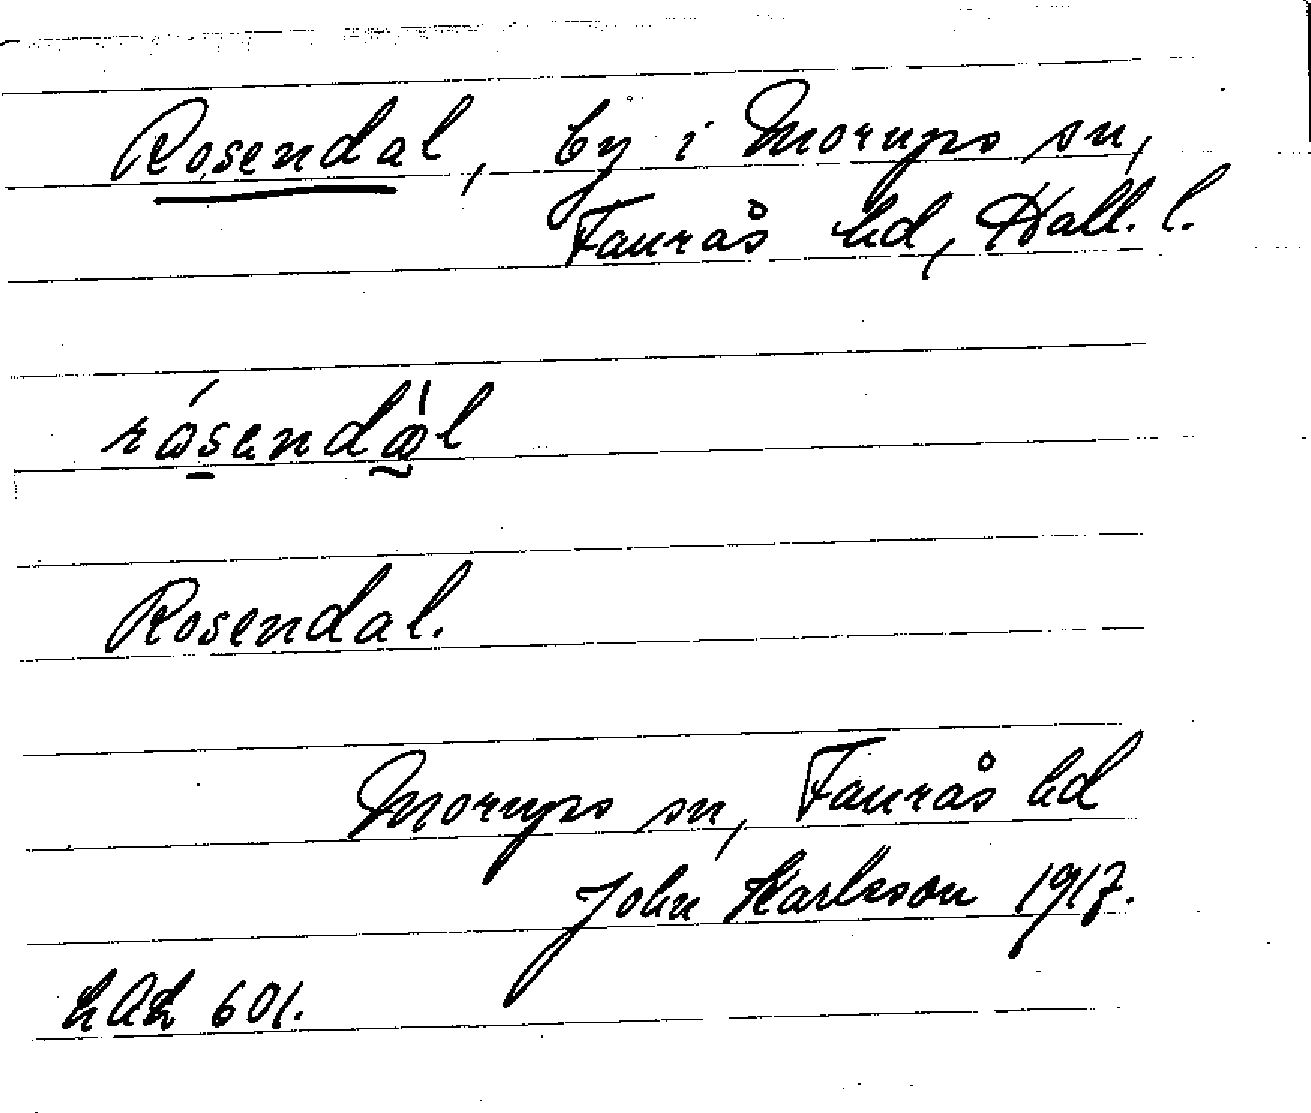 Rosendal, by i Morups sn,
Faurås hd, Hall. l.
rosendal
Rosendal.
Morups sn, Faurås hd
John Karlsson 1917.
601.